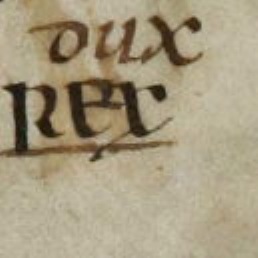 dux
rex